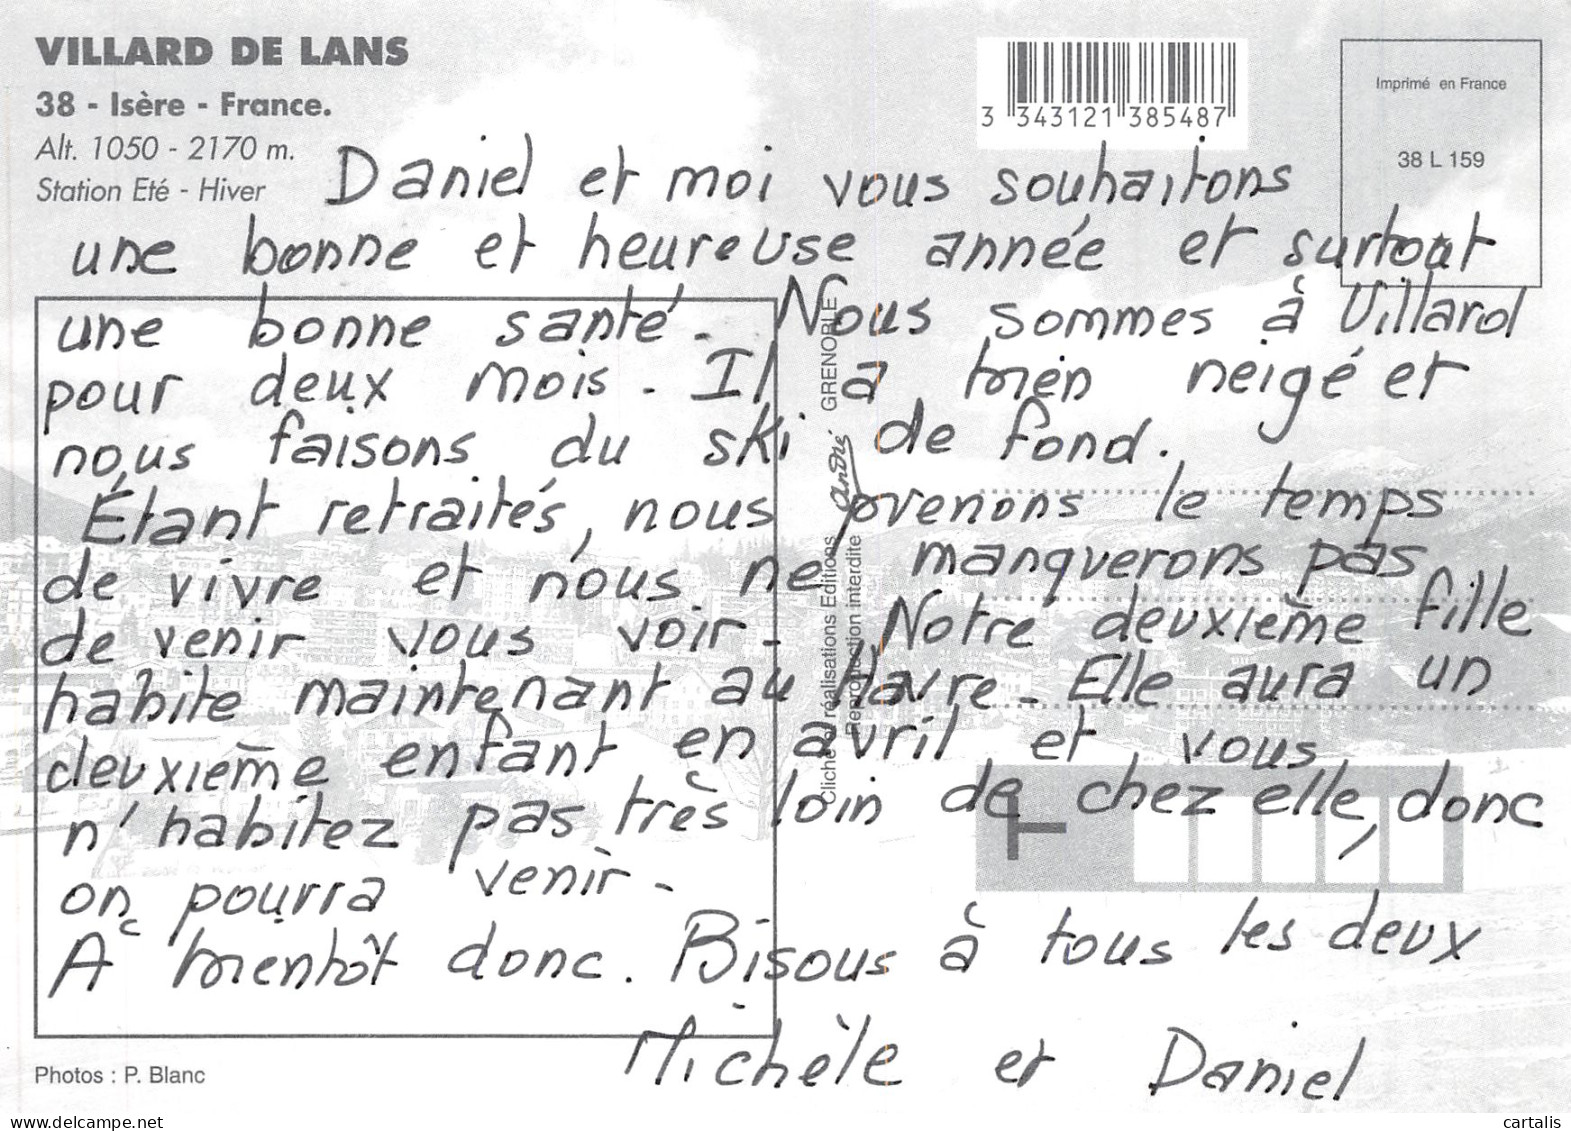 VILLARD DE LANS
38 - Isère - France.
Alt. 1050 - 2170 m.
Station Eté - Hiver
3 343121 385487
Imprimé en France
38 L 159
Daniel et moi vous souhaitons
une bonne et heureuse année et surtout
une bonne santé. Nous sommes à Villard
pour deux mois. Il a bien neigé et
nous faisons du ski de fond.
Étant retraités, nous prenons le temps
de vivre et nous ne manquerons pas
de venir vous voir. Notre deuxième fille
habite maintenant au Havre. Elle aura un
deuxième enfant en avril et vous
n'habitez pas très loin de chez elle, donc
on pourra venir.
A bientôt donc. Bisous à tous les deux
Michèle et Daniel
Cliché et réalisations Editions André GRENOBLE
Reproduction interdite
Photos : P. Blanc
cartalis